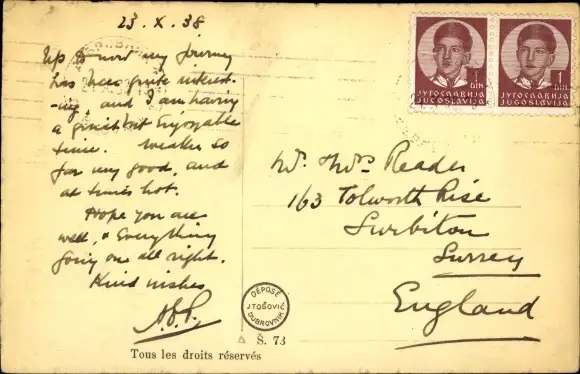 23. X. 38
Up to now my journey
has been quite interest-
-ing, and I am having
a quiet but enjoyable
time. Weather so
far very good, and
at times hot.
Hope you are
well, & everything
going on all right.
Kind wishes
1
DIN
ЈУГОСЛАВИЈА
JUGOSLAVIJA
1
DIN
ЈУГОСЛАВИЈА
JUGOSLAVIJA
Mrs Reader
163 Tolworth Rise
Surbiton
Surrey
England
DÉPOSÉ
J.TOŠOVIĆ
DUBROVNIK
Š. 73
Tous les droits réservés